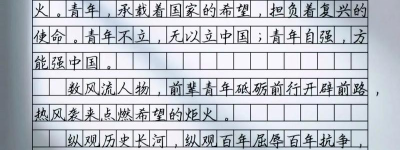 火。青年，承载着国家的希望，担负着复兴的
使命。青年不立，无以立中国；青年自强，方
能强中国。
数风流人物，前辈青年砥砺前行开辟前路，
热风袭来点燃希望的炬火。
纵观历史长河，纵观百年屈辱百年抗争，